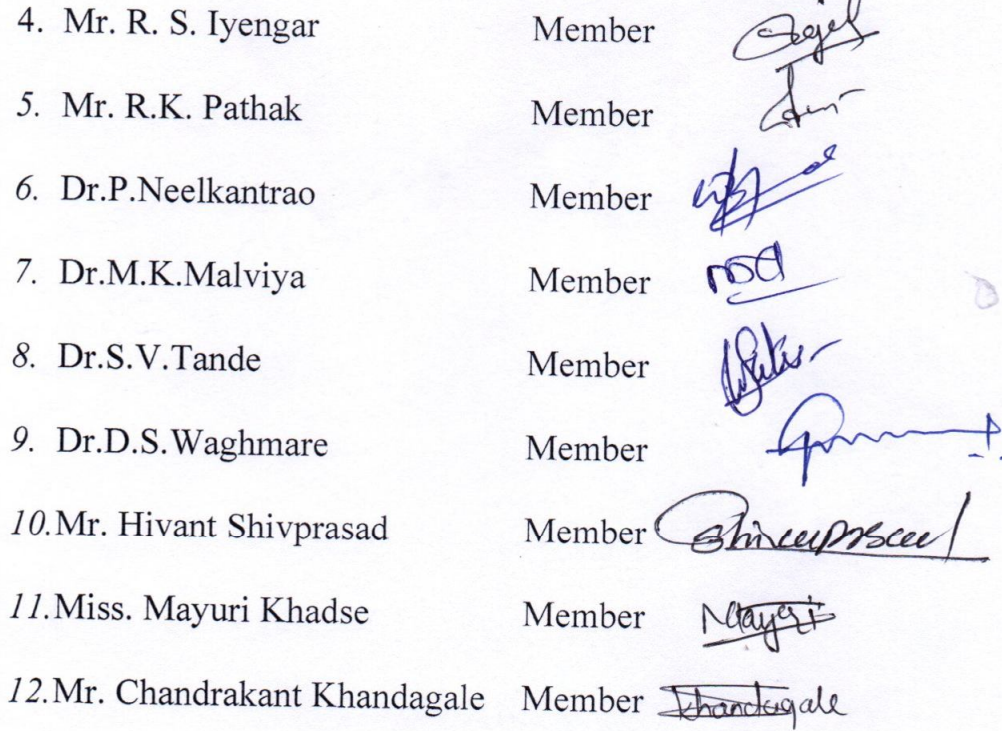 4. Mr. R. S. Iyengar Member
5. Mr. R.K. Pathak Member
6. Dr.P.Neelkantrao Member
7. Dr.M.K.Malviya Member
8. Dr.S.V.Tande Member
9. Dr.D.S.Waghmare Member
10.Mr. Hivant Shivprasad Member Shivprasad
11.Miss. Mayuri Khadse Member Mayuri
12.Mr. Chandrakant Khandagale Member Khandagale